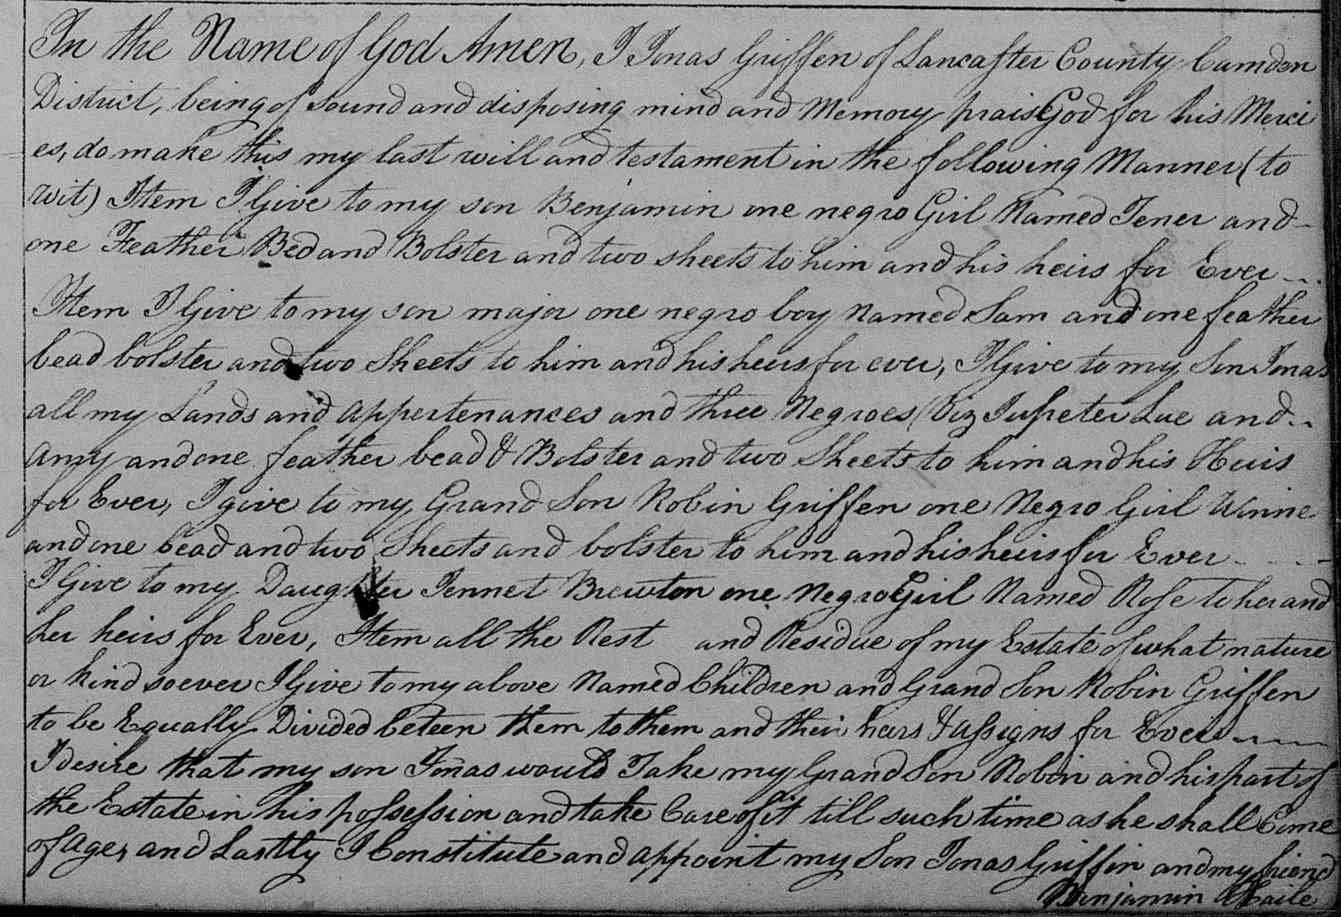 In the Name of God Amen, I Jonas Griffen of Lancaster County Camden
District, being of sound and disposing mind and Memory praise God for his Merci
es, do make this my last will and testament in the following Manner (to
wit) Item I Give to my son Benjamin one negro Girl Named Jener and
one Feather Bed and Bolster and two sheets to him and his heirs for Ever
Item I Give to my son major one negro boy Named Sam and one feather
bead bolster and two Sheets to him and his heirs for ever, I Give to my Son Jonas
all my Lands and appertenances and three Negroes (Viz Jupeter Lue and
Amy and one feather bead & Bolster and two Sheets to him and his Heirs
for Ever, I give to my Grand Son Robin Griffen one Negro Girl Winne
and one bead and two Sheets and bolster to him and his heirs for Ever
I Give to my Daughter Jennet Brewton one Negro Girl Named Rose to her and
her heirs for Ever, Item all the Rest and Residue of my Estate of what nature
or kind soever I Give to my above Named Children and Grand Son Robin Griffen
to be Equally Divided beteen them to them and their heirs & assigns for Ever
I desire that my son Jonas would Take my Grand Son Robin and his part of
the Estate in his possession and take Care of it till such time as he shall Come
of Age, and Lastly I Constitute and appoint my Son Jonas Griffin and my friend
Benjamin Haile